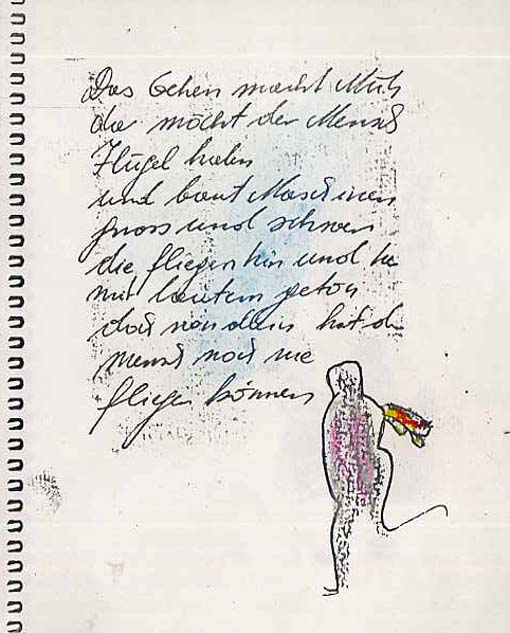 Das Gehen macht Müh
da möcht der Mensch
Flügel haben
und baut Maschinen
gross und schwer
die fliegen hin und he
mit lautem getön
doch von allein hat de
mensch noch nie
fliegen können